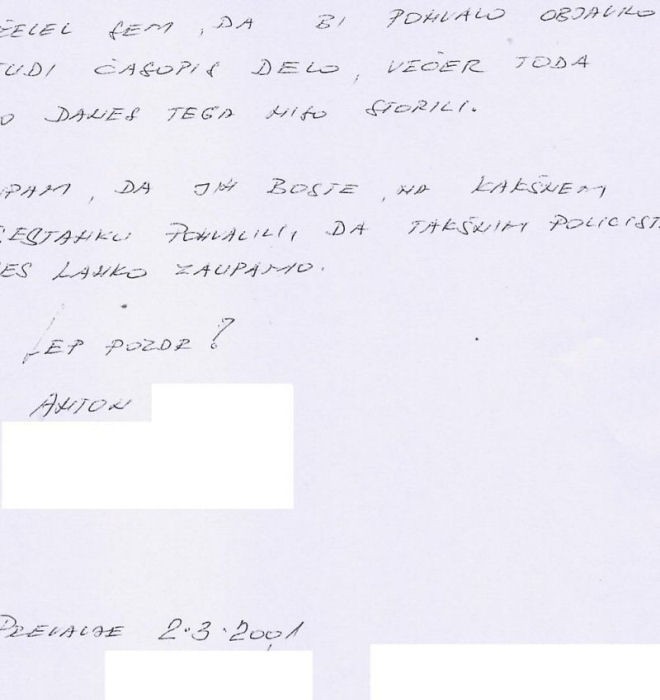 ŽELEL SEM, DA BI POHVALO OBJAVILO
TUDI ČASOPIS DELO, VEČER TODA
DO DANES TEGA NISO STORILI.
UPAM, DA JIH BOSTE, NA KAKŠNEM
SESTANKU POHVALILI, DA TAKŠNIM POLICISTOM
RES LAHKO ZAUPAMO.
LEP POZDR!
ANTON
PREVALJE 2.3.2001